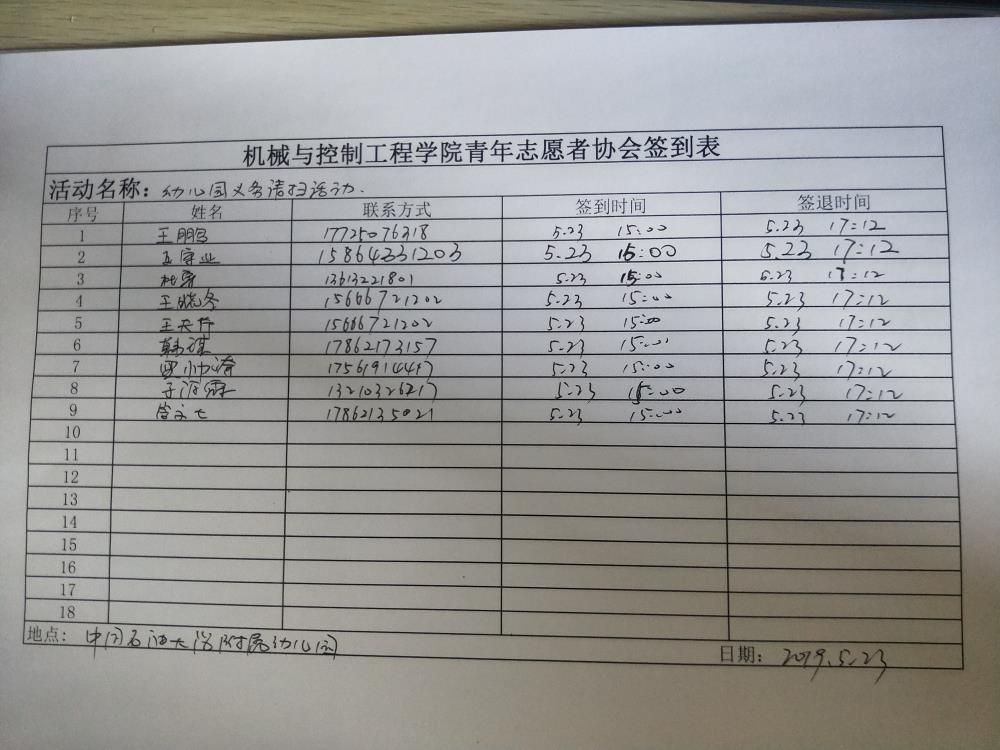 机械与控制工程学院青年志愿者协会签到表
活动名称：幼儿园义务清扫活动.
序号 姓名 联系方式 签到时间 签退时间
1 王鹏 17725076318 5.23 15:00 5.23 17:12
2 王守业 15864331203 5.23 15:00 5.23 17:12
3 13613221801 5.23 15:00 5.23 17:12
4 王晓冬 15666721202 5.23 15:00 5.23 17:12
5 王天 15666721202 5.23 15:00 5.23 17:12
6 韩琪 17862173157 5.23 15:00 5.23 17:12
7 5.23 15:00 5.23 17:12
8 5.23 15:00 5.23 17:12
9 17862135021 5.23 15:00 5.23 17:12
10
11
12
13
14
15
16
17
18
地点：中国石油大学附属幼儿园
日期：2019.5.23